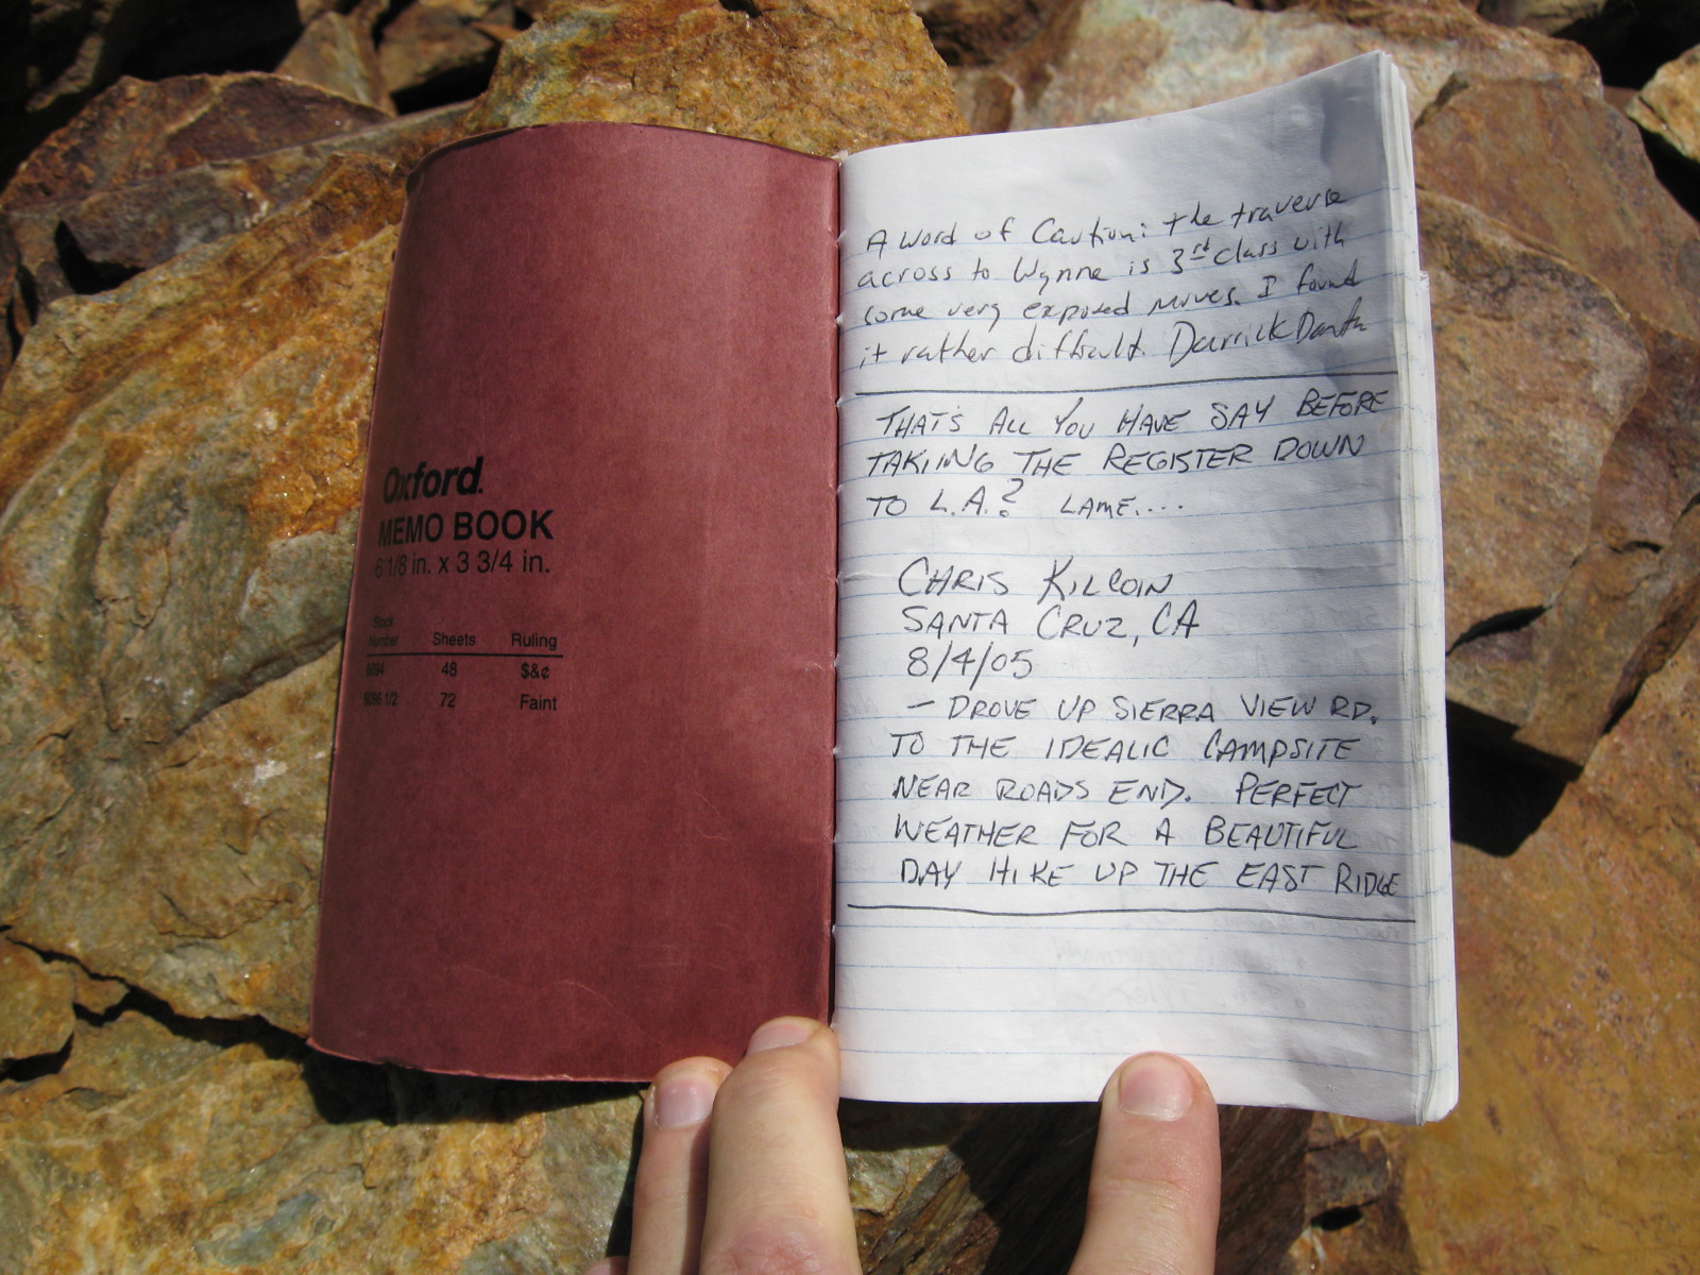 Oxford.
MEMO BOOK
6 1/8 in. x 3 3/4 in.
Stock
Number Sheets Ruling
48 $&¢
6096 1/2 72 Faint
A word of Caution: the traverse
across to Wynne is 3rd class with
some very exposed moves. I found
it rather difficult. Derrick
THAT'S ALL YOU HAVE SAY BEFORE
TAKIING THE REGISTER DOWN
TO L.A.? LAME....
CHRIS KILCOIN
SANTA CRUZ, CA
8/4/05
- DROVE UP SIERRA VIEW RD.
TO THE IDEALIC CAMPSITE
NEAR ROADS END. PERFECT
WEATHER FOR A BEAUTIFUL
DAY HIKE UP THE EAST RIDGE